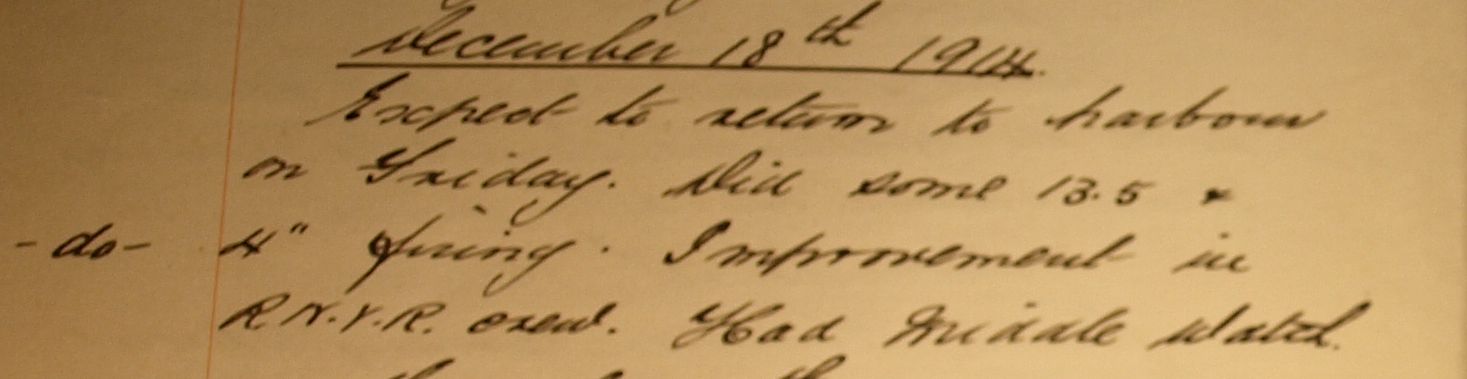 December 18th 1914.
Expect to return to harbour
on Friday. Did some 13.5 &
- do - 4" firing. Improvement in
R.N.V.R. crew. Had Middle Watch.